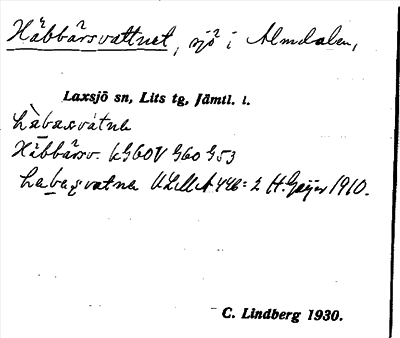 Häbbärsvattnet, sjö i Almdalen,
Laxsjö sn, Lits tg, Jämtl. l.
hàbaṣvátna
Häbbärsv. kG60V G60 G53
habaṣvatna ULMA 446:2 H. Geijer 1910.
C. Lindberg 1930.